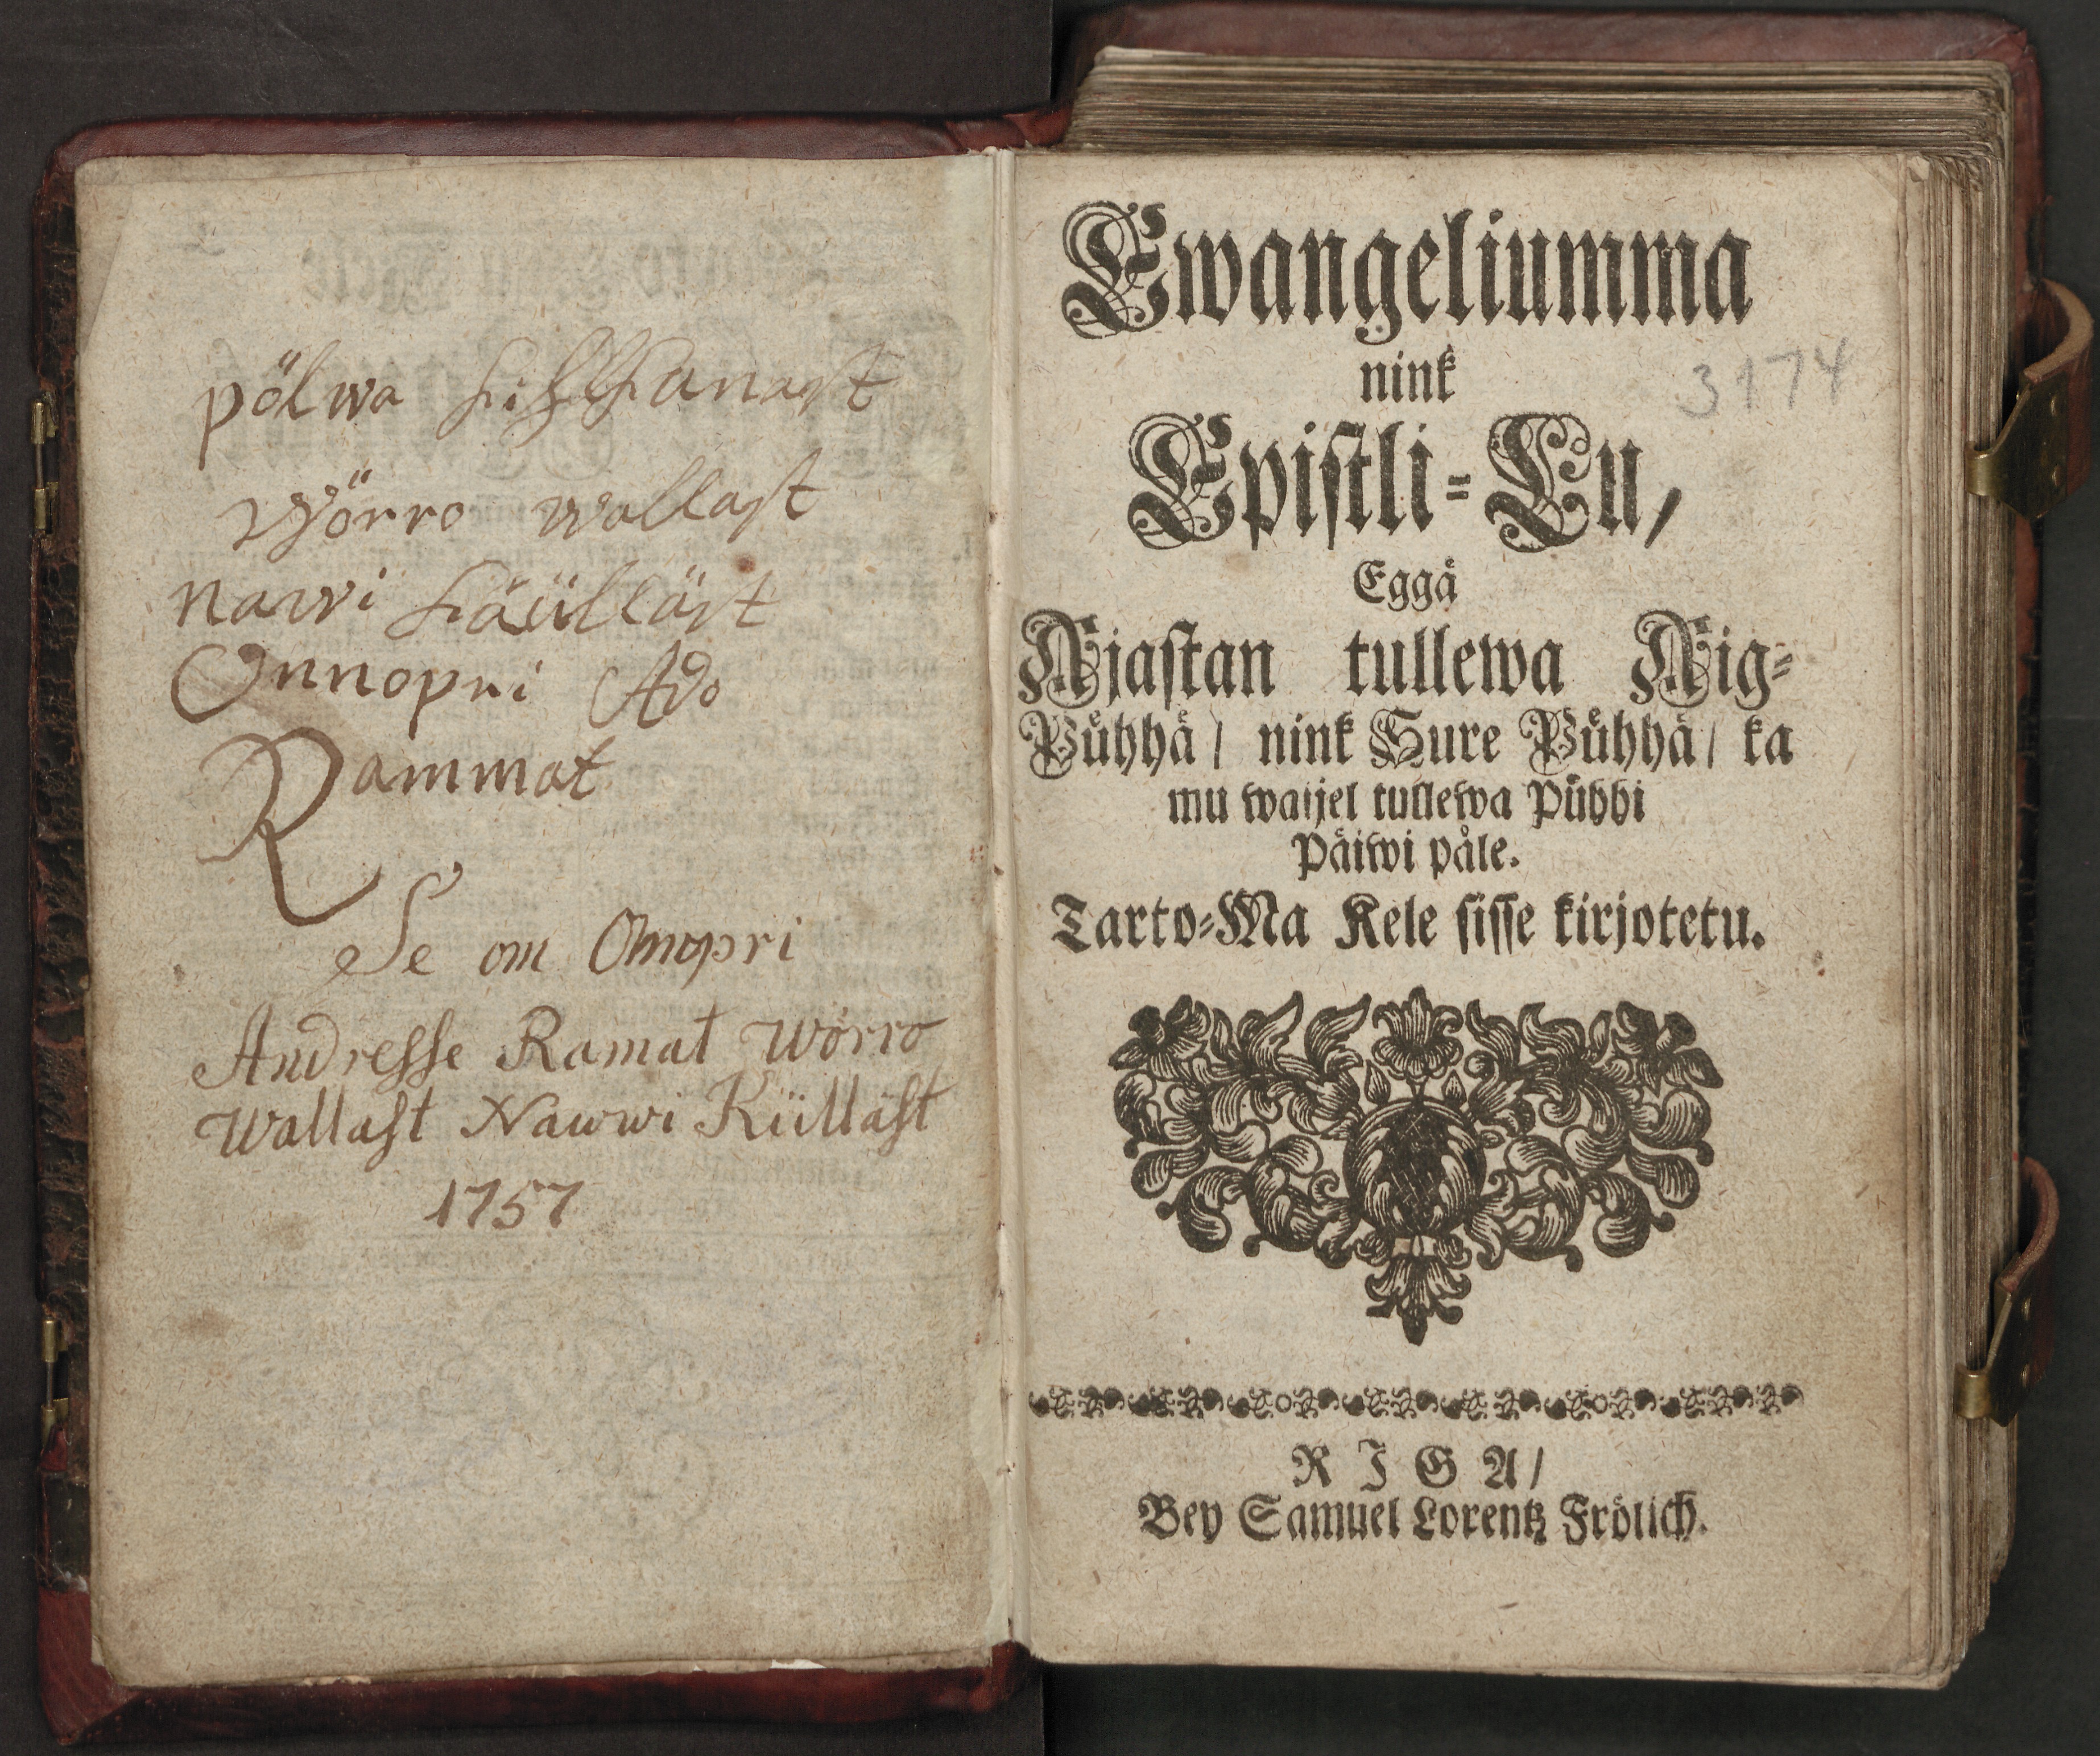 pölwa kihhkanast
Wörro wallast
nawi käülläst
Onnopri Ado
Rammat
Se om Onopri
Andresse Ramat Wörro
Wallast Nawwi Küllast
1757
Ewangeliumma
nink
3174
Epistli-Lu,
Eggä
Ajastan tullewa Aig-
Pühhä/ nink Sure Pühhä/ ka
mu waijel tullewa Pühhi
Päiwi påle.
Tarto-Ma Kele sisse kirjotetu.
RIGA/
Bey Samuel Lorentz Frölich.